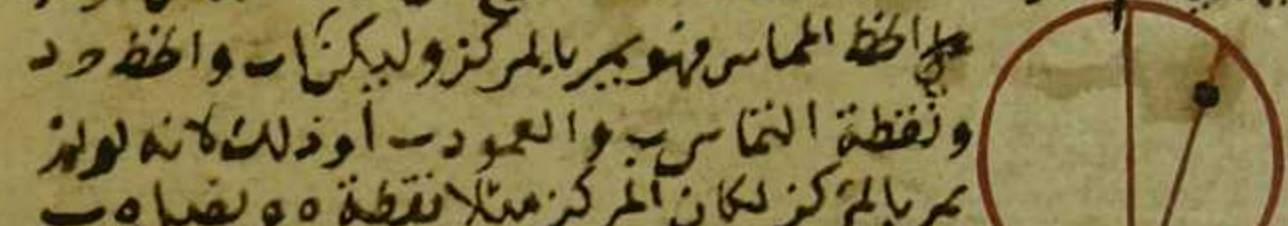 على الخط المماس فهو يمر بالمركز وليكن اب والخط ح د
ونقطة التماس ب والعمود ب ا وذلك لانه لو لم
يمر بالمركز لكان المركز مثلا نقطة ه ونصل ه ب